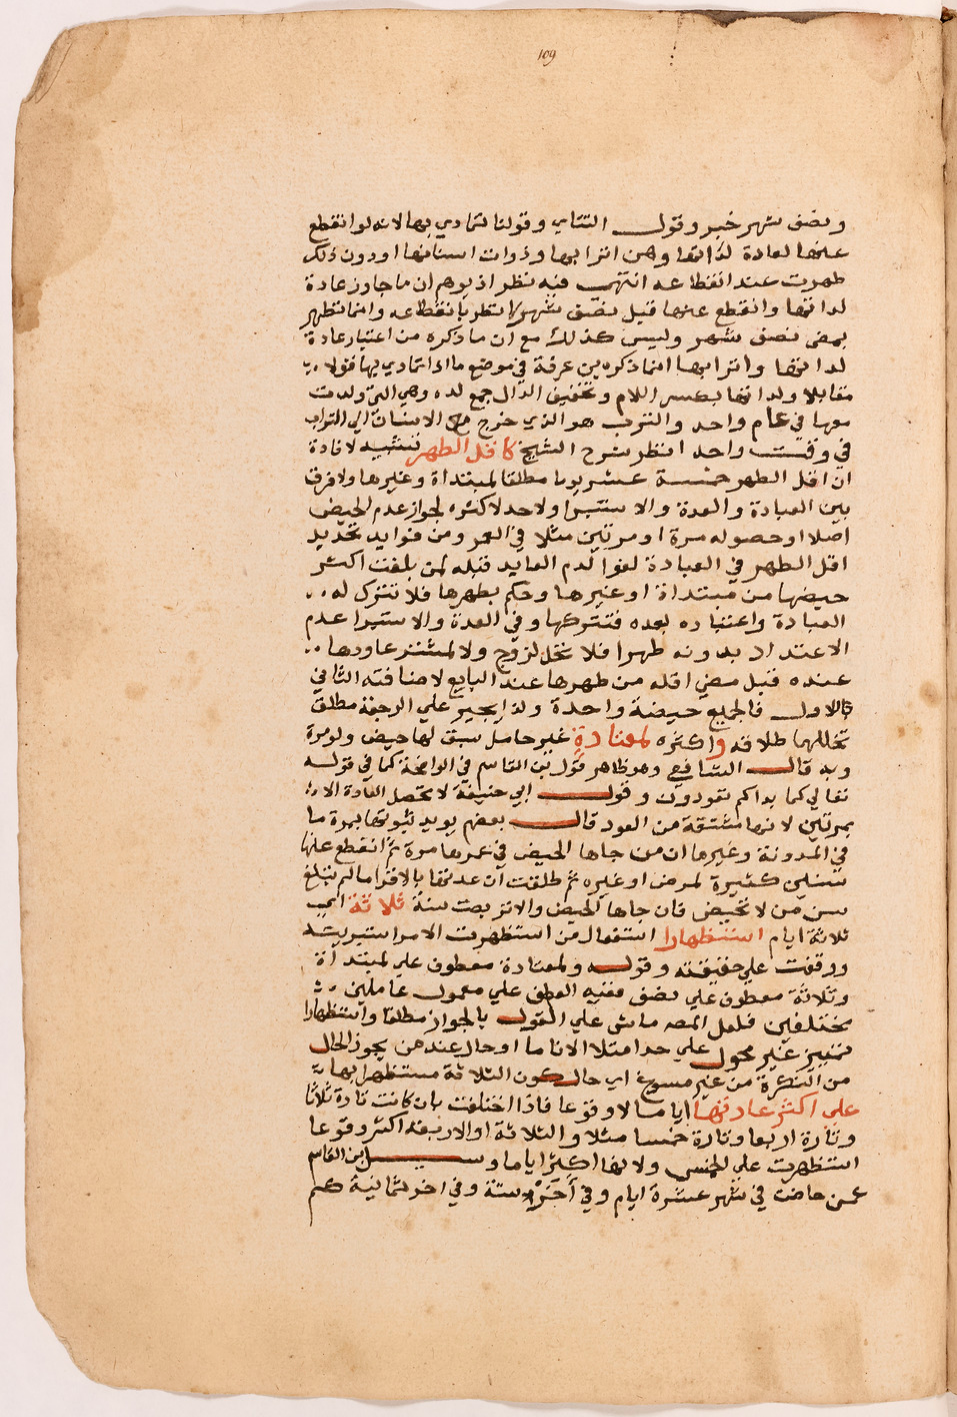 109
ونصف شهر خبر وقول التتاي وقولنا لتمادي بها لانه لو انقطع
عنها لعادة لداتها وهن اترابها وذوات اسنانها او دون ذلك
طهرت عند انقطاعه انتهى فيه نظر اذ يوهم ان ما جاوز عادة
لداتها وانقطع عنها قبل نصف شهر لا تطهر بانقطاعه وانما تطهر
بمضي نصف شهر وليس كذلك مع ان ما ذكره من اعتبار عادة
لداتها واترابها انما ذكره بن عرفة في موضع ما اذا تمادي بها قولا
مقابلا ولداتها بكسر اللام وتخفيف الدال جمع لده وهي التي ولدت
معها في عام واحد والترب هو الذي خرج مع الانسان الي التراب
في وقت واحد انظر شرح الشيخ كاقل الطهر تشبيه لافادة
ان اقل الطهر خمسة عشر يوما مطلقا لمبتداة وغيرها ولا فرق
بين العبادة والعدة والاستبرا ولا حد لاكثره لجواز عدم الحيض
اصلا او حصوله مرة او مرتين مثلا في العمر ومن فوايد تحديد
اقل الطهر في العبادة لغو الدم العايد قبله لمن بلغت اكثر
حيضها من مبتداة او غيرها وحكم بطهرها فلا تترك له
العبادة واعتباره بعده فتتركها وفي العدة والاستبرا عدم
الاعتداد بدونه طهرا فلا تحل لزوج ولا لمشتر عاودها
عنده قبل مضي اقله من طهرها عند البايع لاضافته الثاني
للاول فالجميع حيضة واحدة ولذا يجبر علي الرجعة مطلق
تخللهما طلاقه واكثره لمعتادة غير حامل سبق لها حيض ولو مرة
وبه قال الشافعي وهو ظاهر قول بن القاسم في الواضحة كما في قوله
تعالي كما بداكم تعودون وقول ابي حنيفة لا تحصل العادة الا
بمرتين لانها مشتقة من العود قال بعضهم يويد ثبوتها بمرة ما
في المدونة وغيرها ان من جاها الحيض في عمرها مرة ثم انقطع عنها
سنين كثيرة لمرض او غيره ثم طلقت ان عدتها بالاقرا ما لم تبلغ
سن من لا تحيض فان جاها الحيض والا تربصت سنة ثلاثة اي
ثلاثة ايام استظهارا استفعال من استظهرت الامر استبريته
ووقفت علي حقيقته وقوله ولمعتادة معطوف علي لمبتداة
وثلاثة معطوف علي نصف ففيه العطف علي معمول عاملين
مختلفين فلعل المصه ماشي علي القول بالجواز مطلقا واستظهارا
تمييز غير محول علي حد امتلا الانا ما او حال عند من يجوز الحال
من النكرة من غير مسوغ اي حال كون الثلاثة مستظهرا بها
علي اكثر عادتها اياما لا وقوعا فاذا اختلفت بان كانت تارة ثلاثا
وتارة اربعا وتارة خمسا مثلا والثلاثة او الاربعة اكثر وقوعا
استظهرت علي الخمس ولانها اكثر اياما وسيل ابن القاسم
عمن حاضت في شهر عشرة ايام وفي آخر ستة وفي اخر ثمانية كم